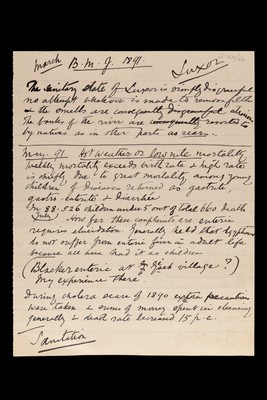 March B.M.J. 1891.
Luxor
The Sanitary state of Luxor is simply disgraceful
no attempt whatever is made to remove filth
& the smells are consequently disgraceful
The banks of the river are consequently resorted to
by natives as in other parts as
May. 91. Hot weather or low nile mortality
mortality exceeds birth rate & high rate
is chiefly due to great mortality among young
children of diseases returned as gastrite,
gastro enterite & Diarrhée
In 88. 526 children under 5 out of total 660 death
(July) How far these complaints are enteric
requires elucidation. Generally held that Egyptians
do not suffer from enteric fever in adult life
because all have had it as children
(Blacker enteric at village?)
My experience there
During cholera scare of 1890 extra precautions
were taken & sums of money spent in cleansing
generally & death rate decreased 15 p.c.
Sanitation